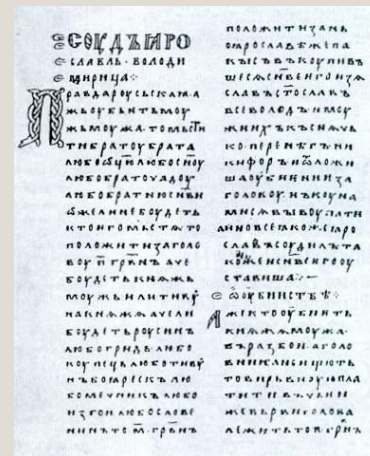 СОУДЪ ꙖРО
СЛАВЛЬ · ВОЛОДИ
МИРИЦА
Правда роусьскаꙗ · а
жь оубьѥть моу
жь моужа · то мьсти
ти братоу брата
любо ѿцю любо сн҃оу
любо братоучадоу
любо братню сн҃ви
ѡже ли не боудеть
кто ѥго мьстѧ то
положити за голо
воу п҃ грв҃нъ аче
боудеть кнѧжь
моужь или тиоу
на кнѧжѧ аче ли
боудеть роусинъ
любо гридь любо
коупець любо тивоу
нъ боꙗрескъ лю
бо мечникъ любо
изгои любо слове
нинъ то м҃ · грв҃нъ
положити за нь
по ꙗрославѣ же па
кы съвъкоупивъ
шесѧ сн҃ве ѥго изѧ
славъ ст҃ославъ
всеволодъ и моу
жи ихъ къснѧчь
ко перенѣгъ ни
кифоръ и ѿложи
ша оубиѥниѥ за
головоу нъ коуна
ми сѧ выкоупати
а ино все ꙗкоже ꙗро
славъ соудилъ та
коже и сн҃ве ѥго оу
ставиша
ѡ оубииствѣ
Аже кто оубиѥть
кнѧжа моужа
въ разбои а голо
вника не ищють
то вирьвноую пла
тити въ чьѥи
же вьрви голова
лежить то п҃ грв҃нъ